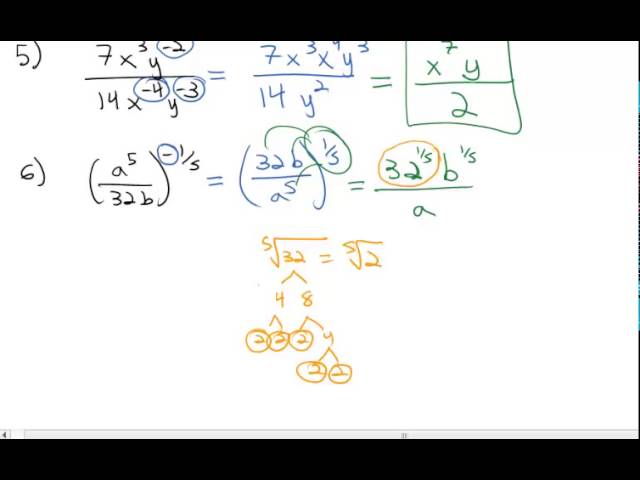 5) (7x³y⁻²)/(14x⁻⁴y⁻³) = (7x³x⁴y³)/(14y²) = (x⁷y)/2
6) (a⁵/32b)^(-1/5) = (32b/a⁵)^(1/5) = (32^(1/5) b^(1/5))/a
⁵√32 = ⁵√2
4 8
2 2 2 4
2 2